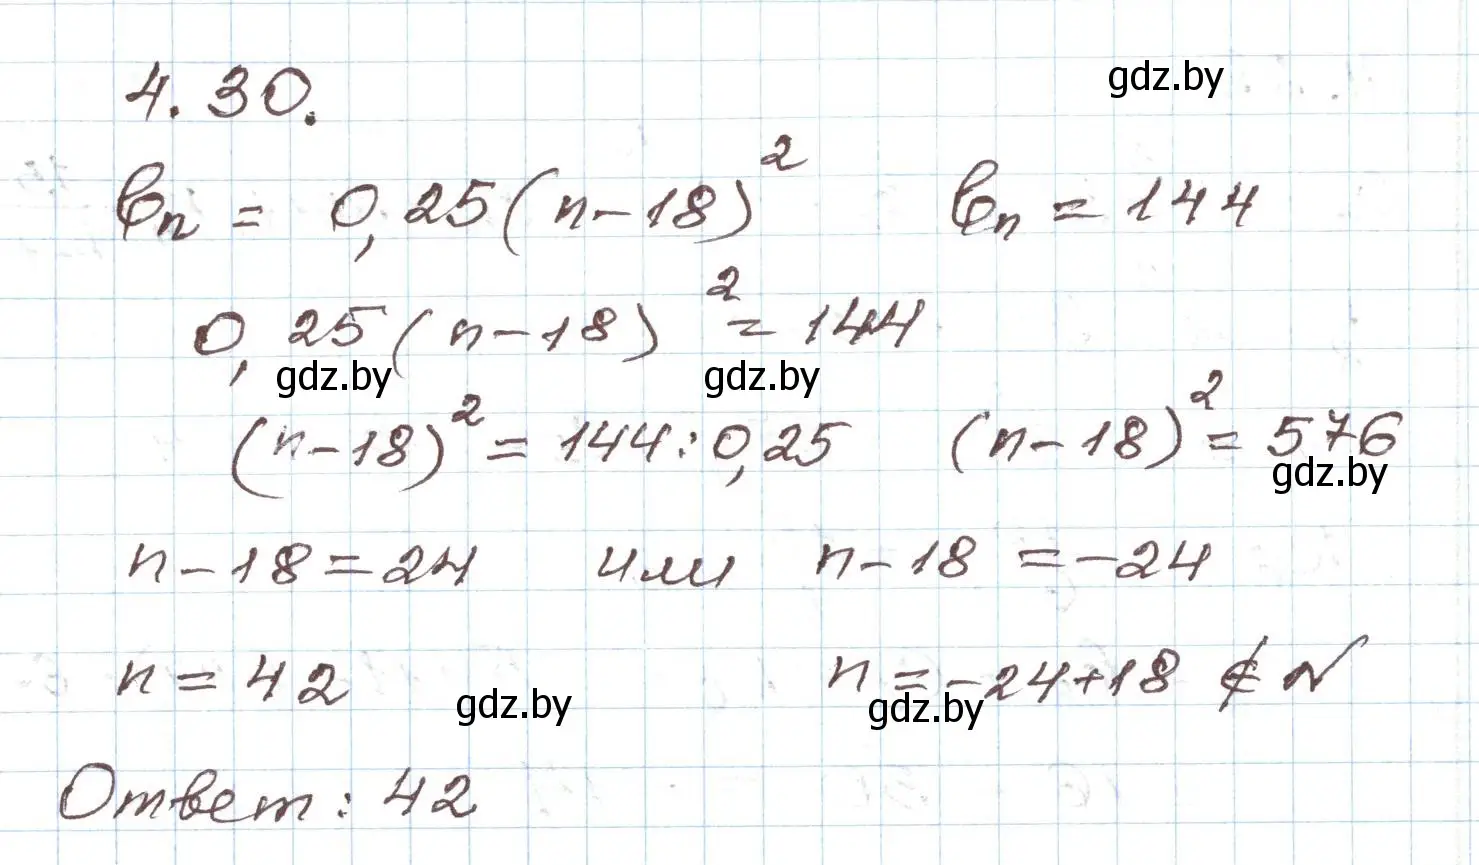 4.30.
gdz.by
bn = 0,25(n-18)² bn = 144
0,25(n-18)² = 144
gdz.by gdz.by
(n-18)² = 144:0,25 (n-18)² = 576
gdz.by
n-18=24 или n-18 =-24
n = 42 n = -24+18 ∉ N
gdz.by gdz.by
Ответ: 42